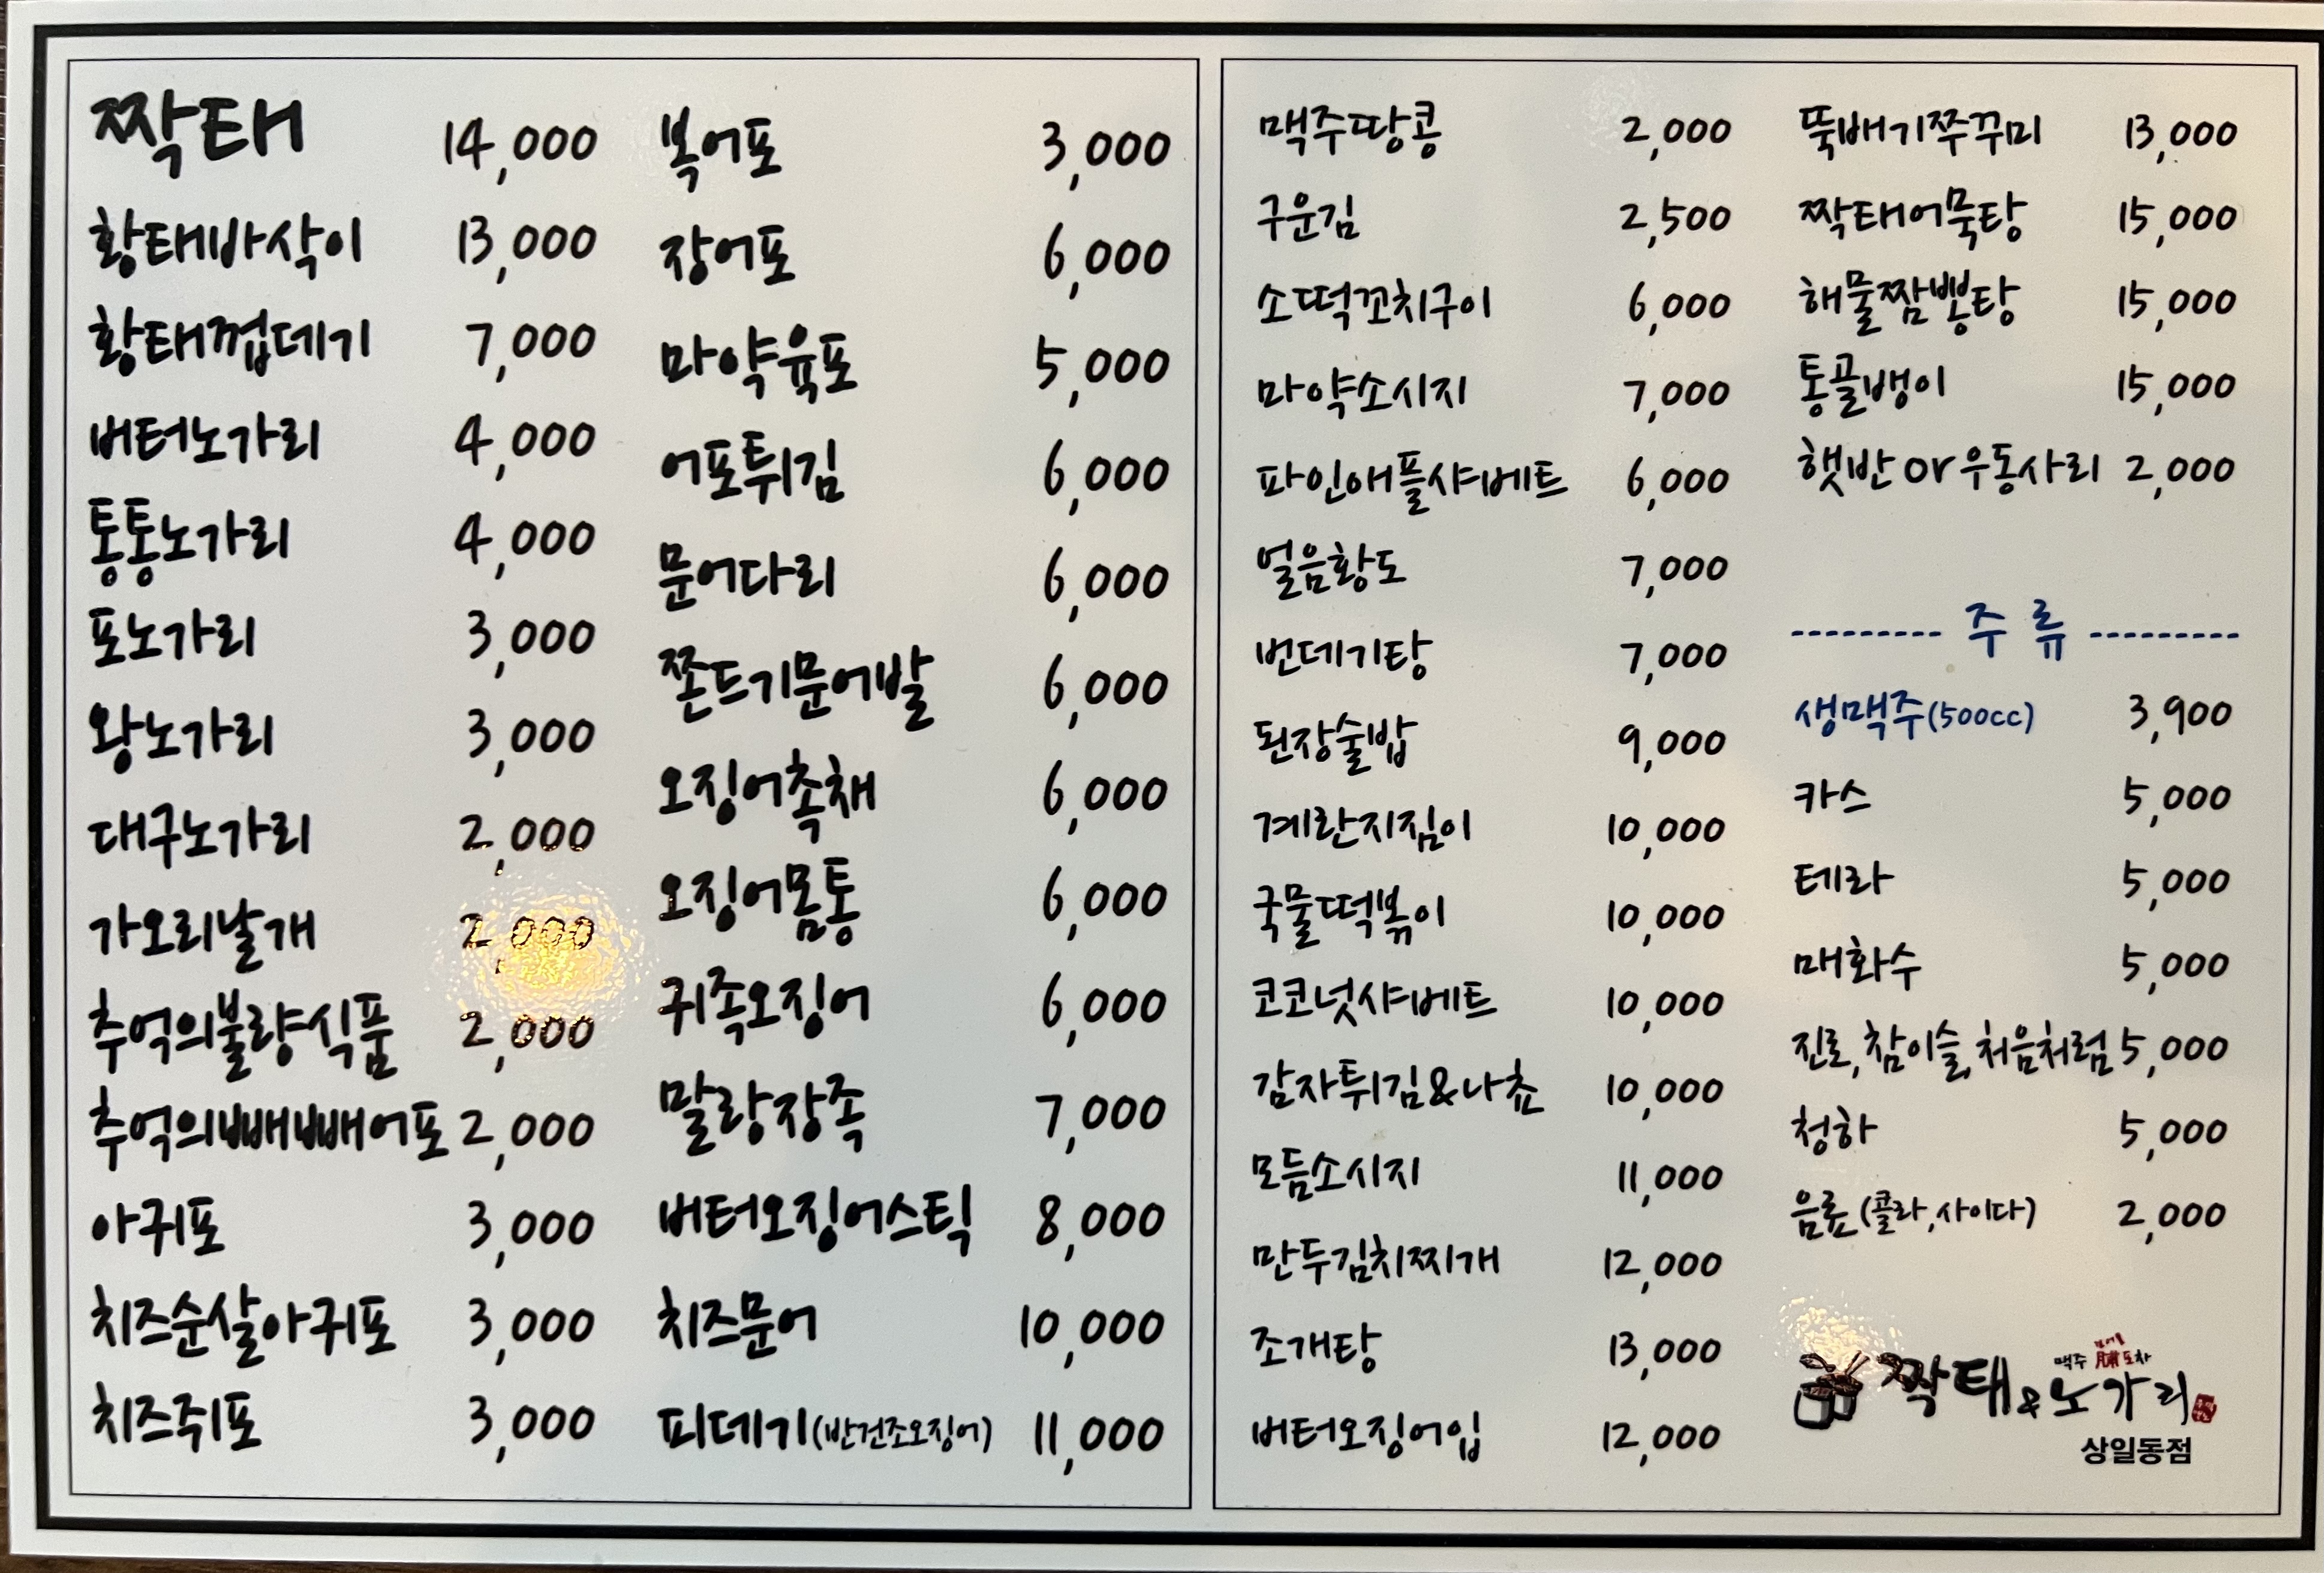 짝태 14,000
황태바삭이 13,000
황태껍데기 7,000
버터노가리 4,000
통통노가리 4,000
포노가리 3,000
왕노가리 3,000
대구노가리 2,000
가오리날개 2,000
추억의불량식품 2,000
추억의빼빼어포 2,000
아귀포 3,000
치즈순살아귀포 3,000
치즈쥐포 3,000
복어포 3,000
장어포 6,000
마약육포 5,000
어포튀김 6,000
문어다리 6,000
쫀드기문어발 6,000
오징어촉채 6,000
오징어몸통 6,000
귀족오징어 6,000
말랑장족 7,000
버터오징어스틱 8,000
치즈문어 10,000
피데기(반건조오징어) 11,000
맥주땅콩 2,000
구운김 2,500
소떡꼬치구이 6,000
마약소시지 7,000
파인애플샤베트 6,000
얼음황도 7,000
번데기탕 7,000
된장술밥 9,000
계란지짐이 10,000
국물떡볶이 10,000
코코넛샤베트 10,000
감자튀김&나쵸 10,000
모듬소시지 11,000
만두김치찌개 12,000
조개탕 13,000
버터오징어입 12,000
뚝배기쭈꾸미 13,000
짝태어묵탕 15,000
해물짬뽕탕 15,000
통골뱅이 15,000
햇반 or 우동사리 2,000
주 류
생맥주(500cc) 3,900
카스 5,000
테라 5,000
매화수 5,000
진로, 참이슬, 처음처럼 5,000
청하 5,000
음료 (콜라, 사이다) 2,000
맥주 脯 포차
짝태 & 노가리
상일동점